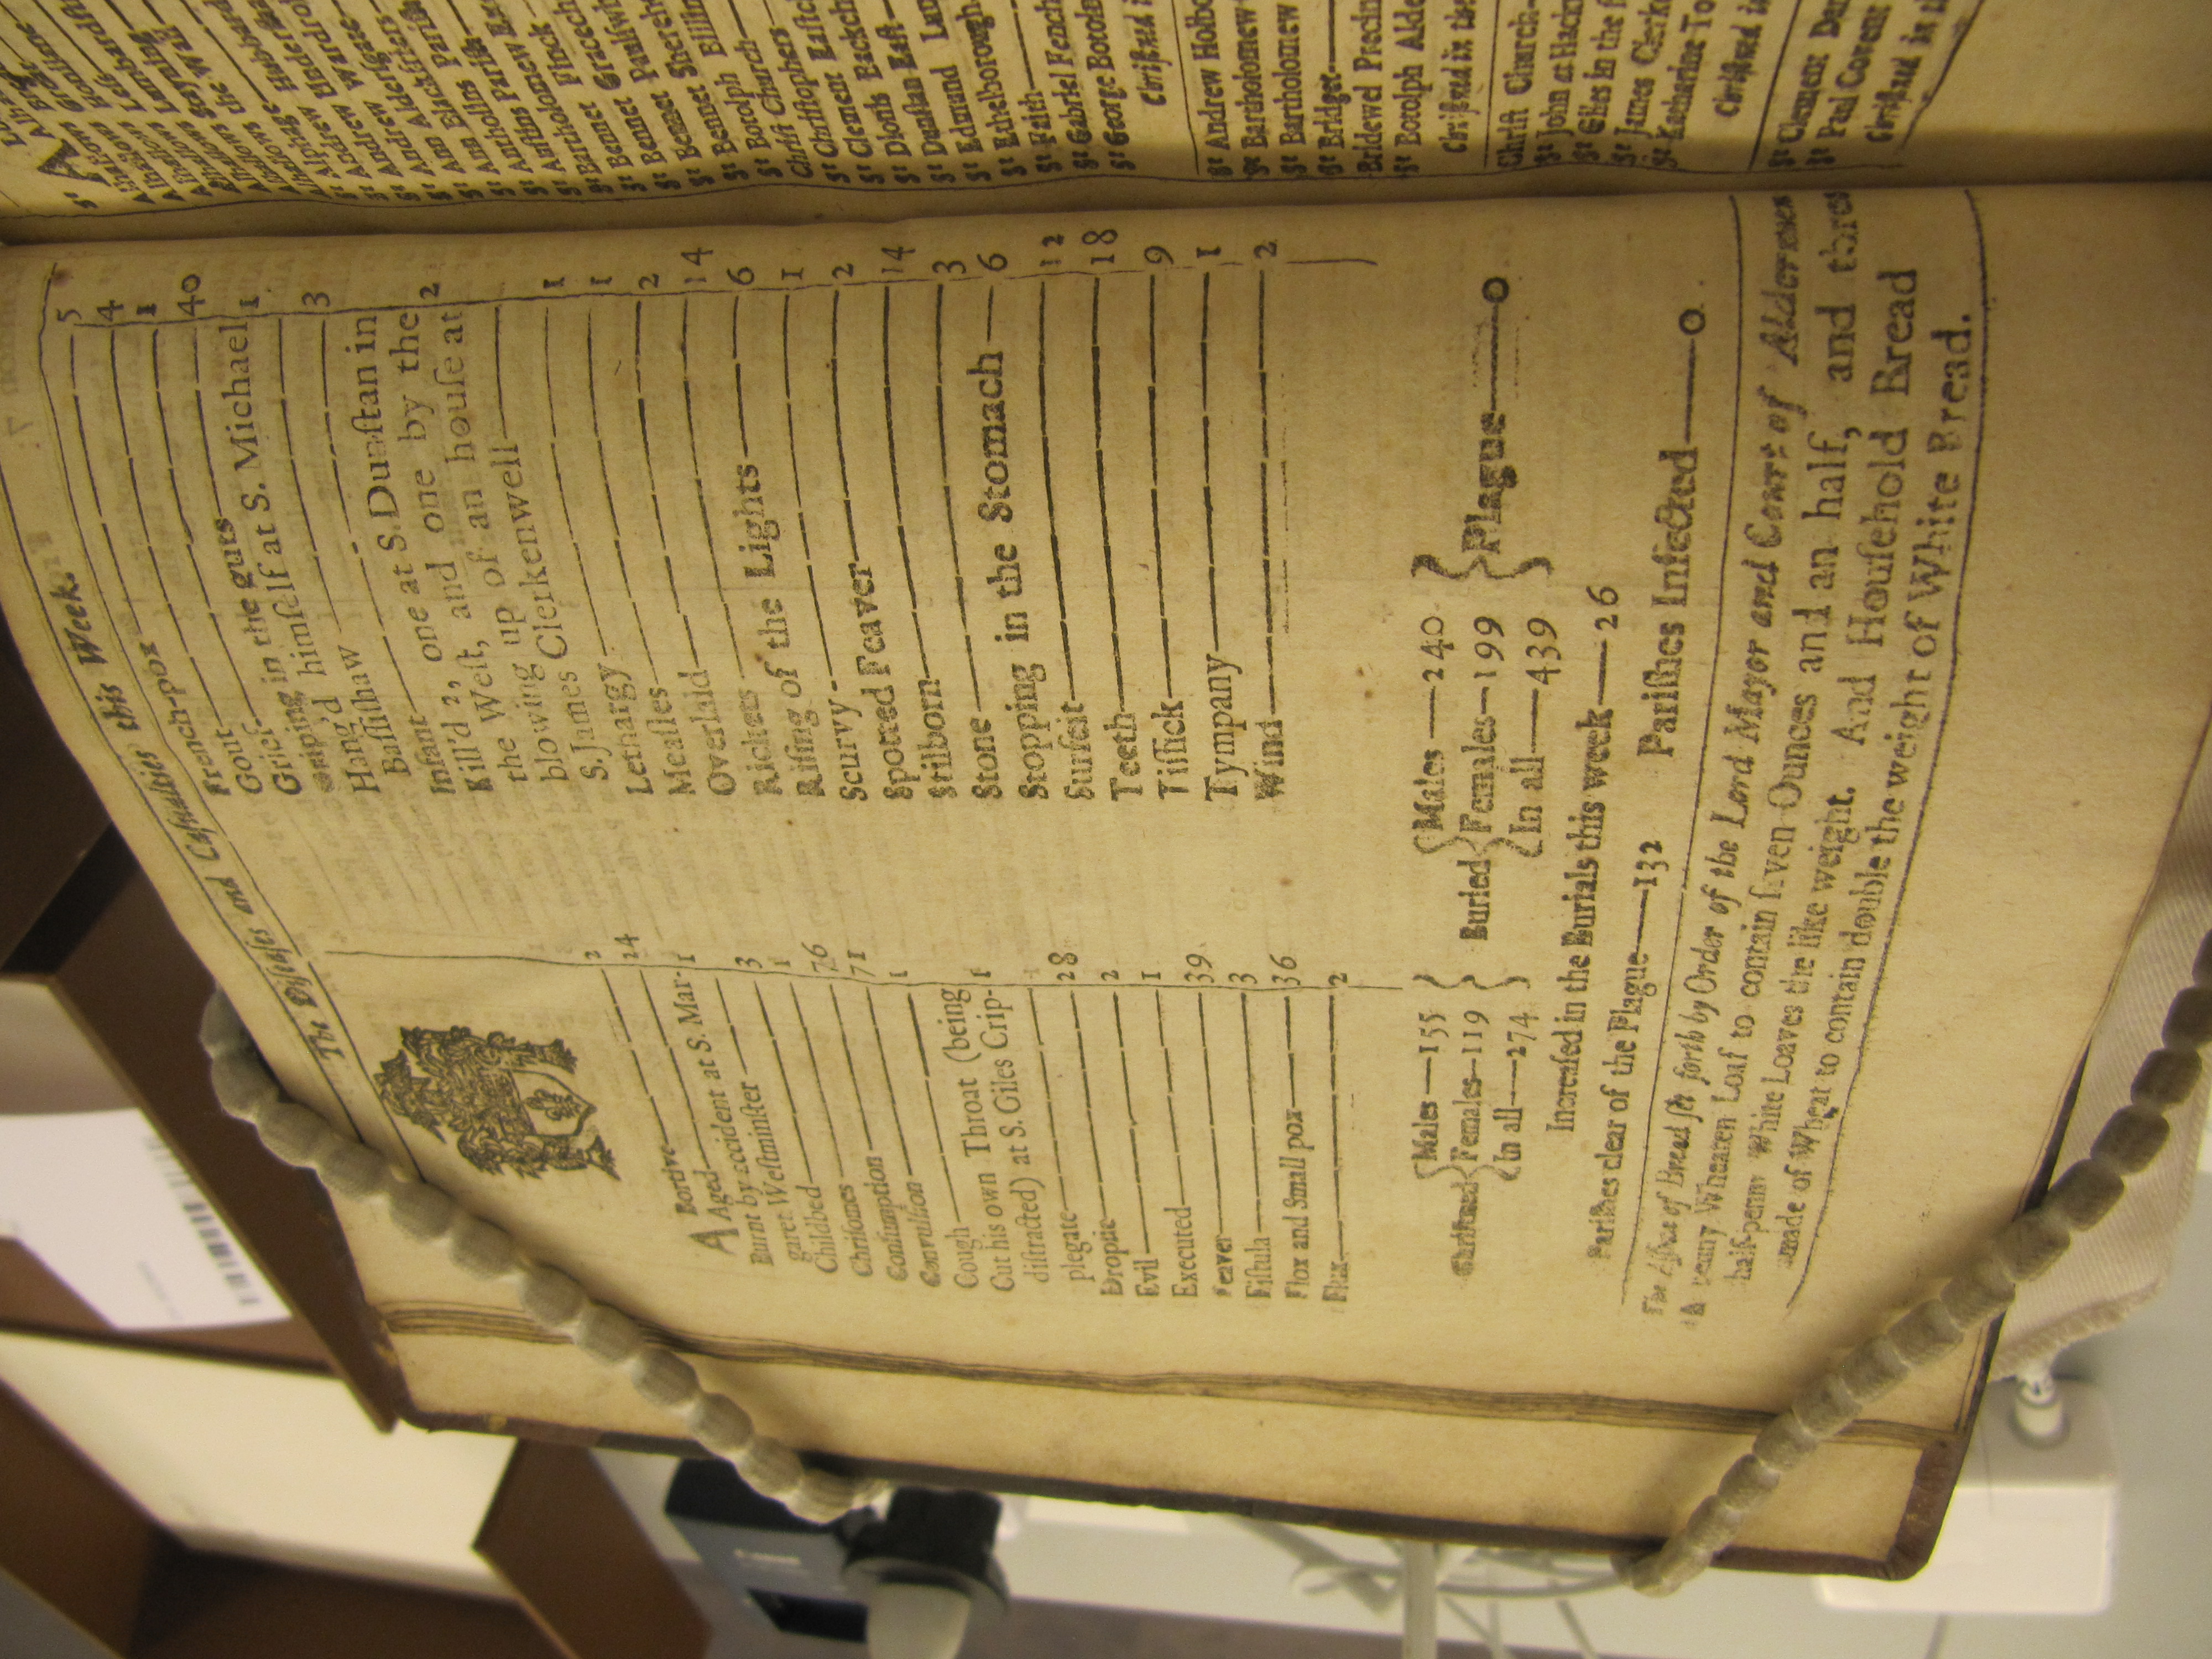 The Diseases and Casualties this Week.
ABortive — 2
Aged — 24
Burnt by accident at S. Mar-
garet Westminster — 1
Childbed — 3
Chrisomes — 1
Consumption — 76
Convulsion — 71
Cough — 1
Cut his own Throat (being
distracted) at S. Giles Crip-
plegate — 1
Dropsie — 28
Evil — 2
Executed — 1
Feaver — 39
Fistula — 3
Flox and Small pox — 36
Flux — 2
French-pox — 5
Gout — 4
Grief — 1
Griping in the guts — 40
Hang'd himself at S. Michael
Bassishaw — 1
Infant — 3
Kill'd 2, one at S. Dunstan in
the West, and one by the
blowing up of an house at
S. James Clerkenwell — 2
Lethargy — 1
Measles — 1
Overlaid — 2
Rickets — 14
Rising of the Lights — 6
Scurvy — 1
Spotted Feaver — 2
Stilborn — 14
Stone — 3
Stopping in the Stomach — 6
Surfeit — 12
Teeth — 18
Tissick — 9
Tympany — 1
Wind — 2
Christned { Males — 155 Females — 119 In all — 274 }
Buried { Males — 240 Females — 199 In all — 439 }
Plague — 0
Increased in the Burials this week — 26
Parishes clear of the Plague — 132 Parishes Infected — 0
The Assize of Bread set forth by Order of the Lord Mayor and Court of Aldermen
A penny Wheaten Loaf to contain seven Ounces and an half, and three
half-penny White Loaves the like weight. And Houshold Bread
made of Wheat to contain double the weight of White Bread.
St Andrew Wardro
St Ann Aldersgate
St Ann Blackfriers
St Antholins Parish
St Austins Parish
St Bartholomew
St Bennet Finck
St Bennet Gracech
St Bennet Paulswh
St Bennet Sherehog
St Botolph Billin
Christ Church
St Christophers
St Clement Eastch
St Dionis Backch
St Dunstan East
St Edmund Lum
St Ethelborough
St Faith
St Gabriel Fench
St George Botolp
Christned i
St Andrew Holbo
St Bartholomew
St Bartholomew
St Bridget
Bridewel Precin
St Botolph Alde
Christned in the
Christ Church
St John at Hackn
St Giles in the f
St James Clerke
St Katharine To
Christned in
St Clement Dan
St Paul Covent
Christned in th
Canon